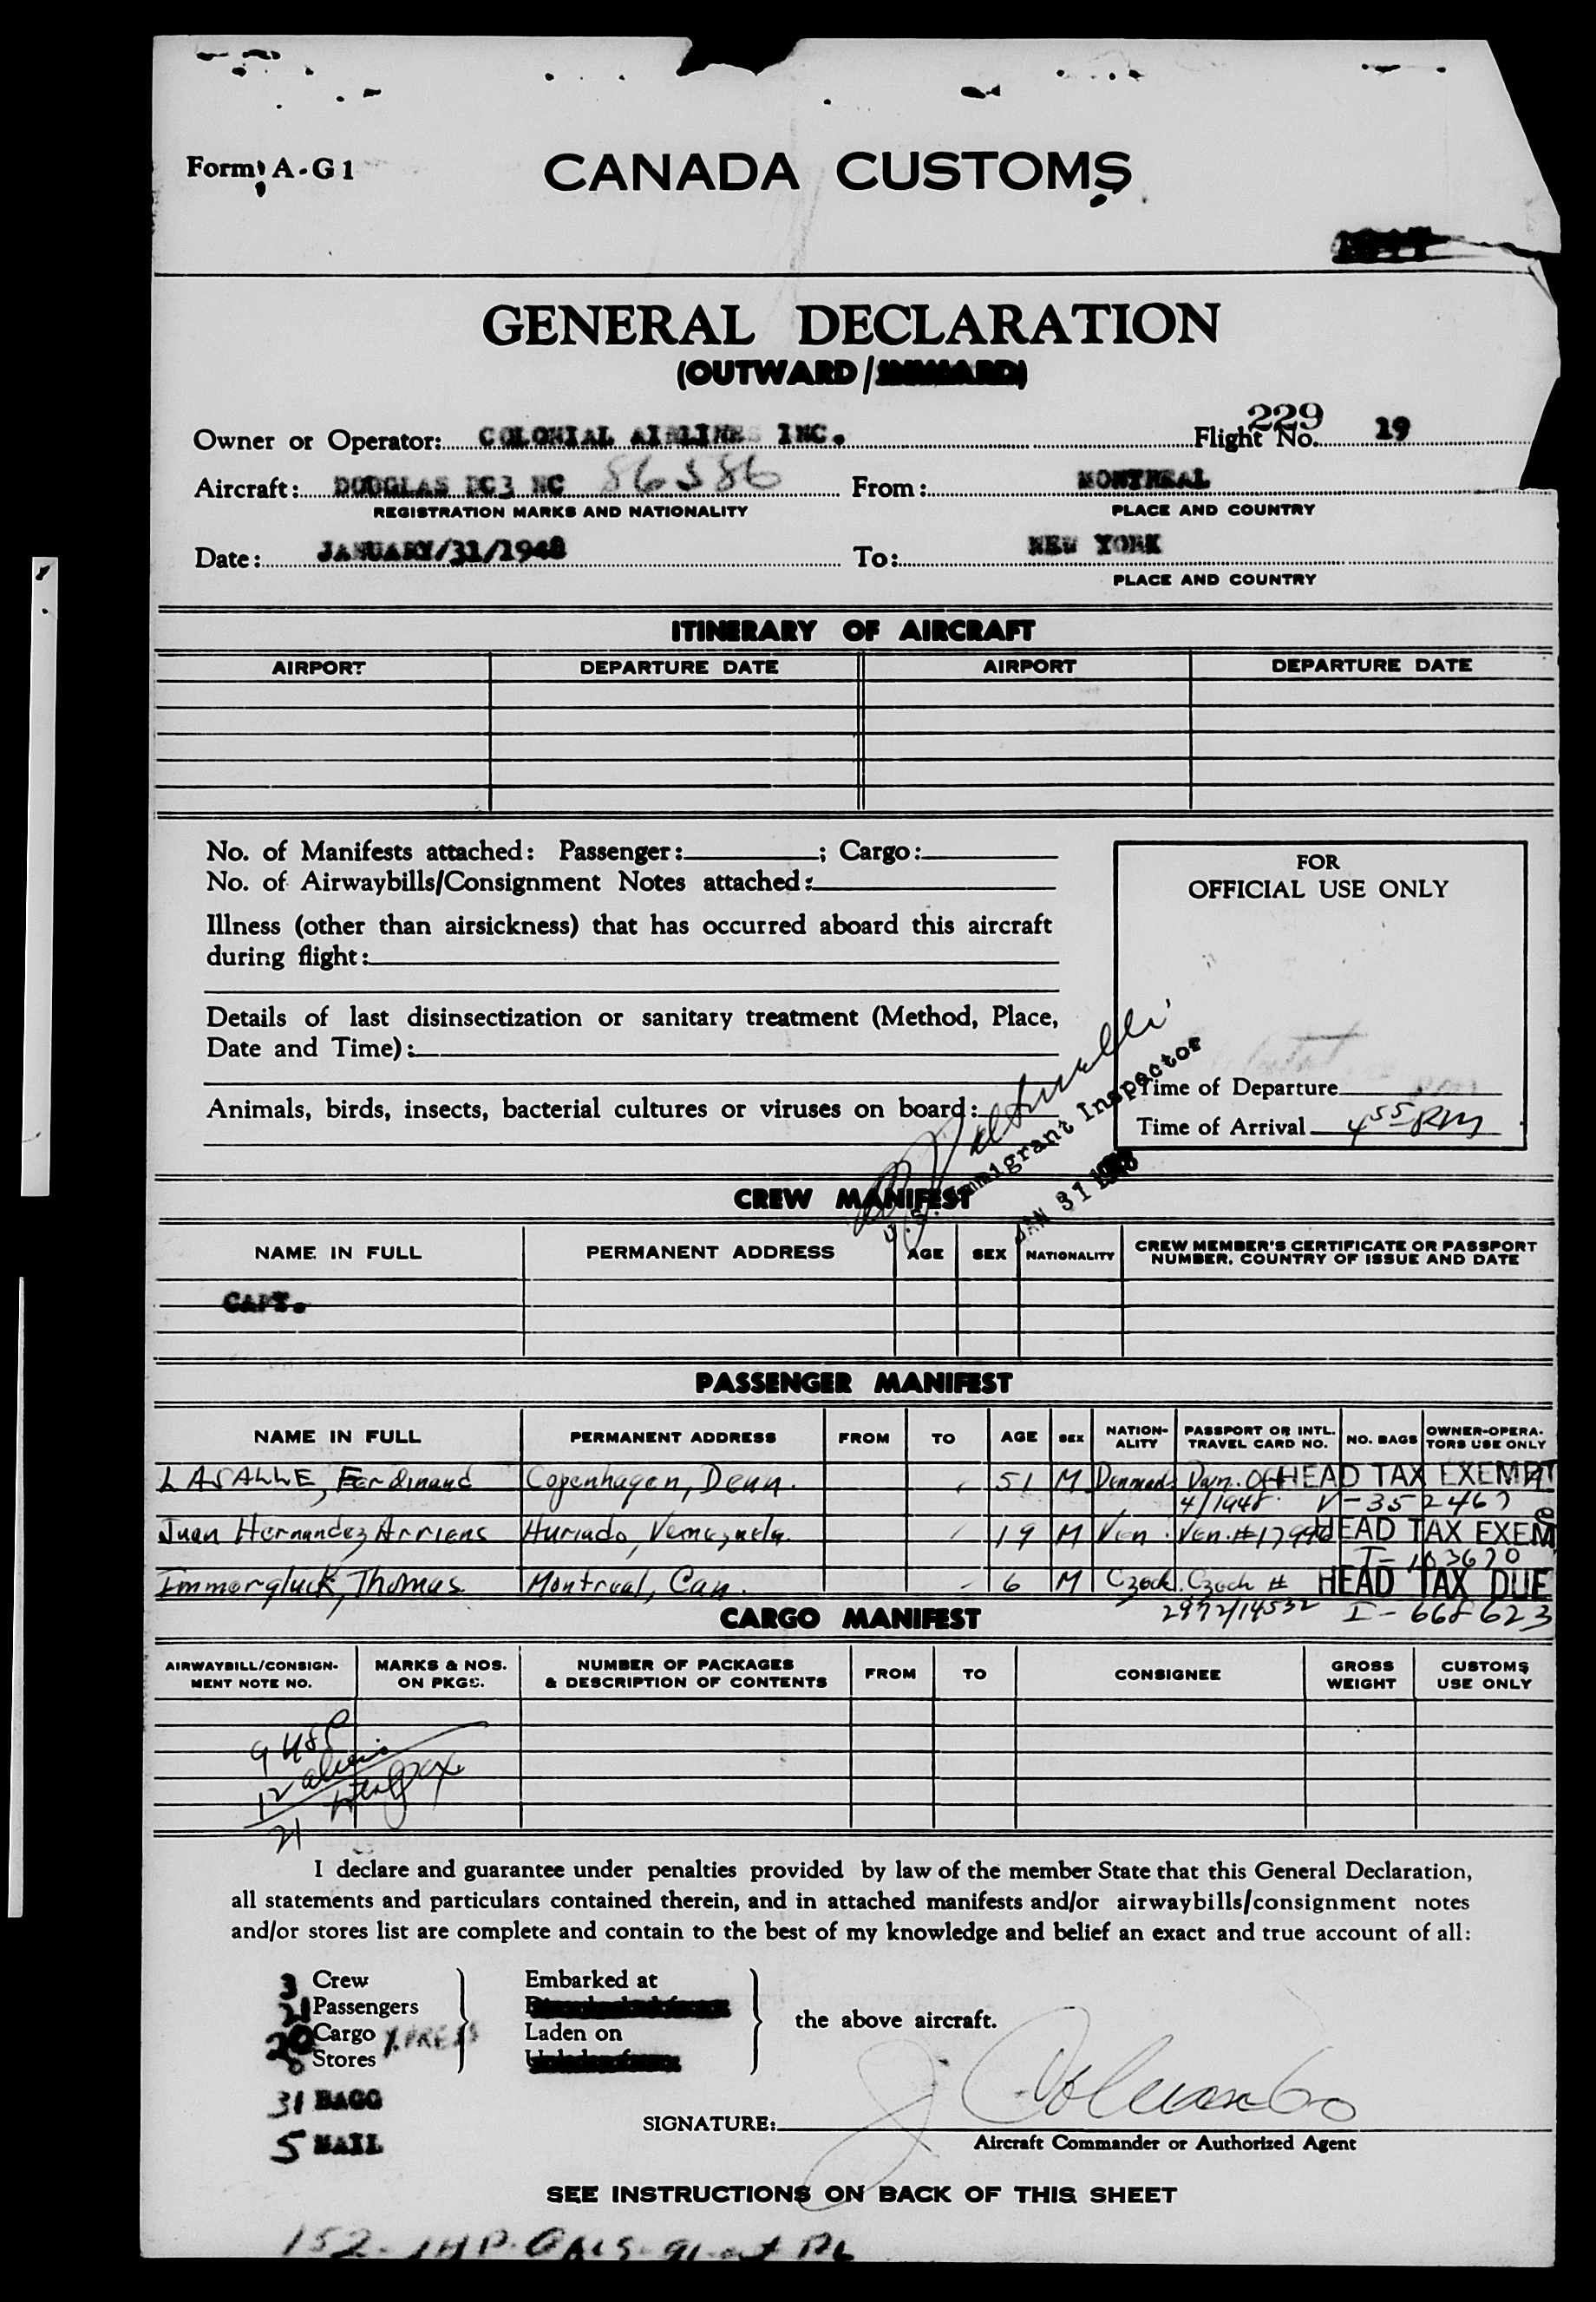 Form A-G 1
CANADA CUSTOMS
GENERAL DECLARATION
(OUTWARD/
229
Owner or Operator: COLONIAL AIRLINES INC. Flight No. 19
Aircraft: DOUGLAS DC3 NC 86586 From: MONTREAL
REGISTRATION MARKS AND NATIONALITY PLACE AND COUNTRY
Date: JANUARY/31/1948 To: NEW YORK
PLACE AND COUNTRY
ITINERARY OF AIRCRAFT
AIRPORT DEPARTURE DATE AIRPORT DEPARTURE DATE
No. of Manifests attached: Passenger: ; Cargo:
No. of Airwaybills/Consignment Notes attached:
Illness (other than airsickness) that has occurred aboard this aircraft
during flight:
Details of last disinsectization or sanitary treatment (Method, Place,
Date and Time):
Animals, birds, insects, bacterial cultures or viruses on board:
FOR
OFFICIAL USE ONLY
Time of Departure
Time of Arrival 4 55 PM
U.S. Immigrant Inspector
JAN 31 1948
CREW MANIFEST
NAME IN FULL PERMANENT ADDRESS AGE SEX NATIONALITY CREW MEMBER'S CERTIFICATE OR PASSPORT
NUMBER, COUNTRY OF ISSUE AND DATE
CAPT.
PASSENGER MANIFEST
NAME IN FULL PERMANENT ADDRESS FROM TO AGE SEX NATION- PASSPORT OR INTL. NO. BAGS OWNER-OPERA-
ALITY TRAVEL CARD NO. TORS USE ONLY
LASALLE, Ferdinand Copenhagen, Denn. 51 M Denmark HEAD TAX EXEMPT
4/1948 V-352467
Juan Hernandez Arriens Huriado, Venezuela. 19 M Ven. Ven. # HEAD TAX EXEM
Immergluck, Thomas Montreal, Can. 6 M Czech. Czech # HEAD TAX DUE
2972/14532 I-668623
CARGO MANIFEST
AIRWAYBILL/CONSIGN- MARKS & NOS. NUMBER OF PACKAGES FROM TO CONSIGNEE GROSS CUSTOMS
MENT NOTE NO. ON PKGS. & DESCRIPTION OF CONTENTS WEIGHT USE ONLY
9 USC
12 aliens
21
I declare and guarantee under penalties provided by law of the member State that this General Declaration,
all statements and particulars contained therein, and in attached manifests and/or airwaybills/consignment notes
and/or stores list are complete and contain to the best of my knowledge and belief an exact and true account of all:
3 Crew Embarked at
21 Passengers
the above aircraft.
20 Cargo XPRESS Laden on
0 Stores
31 BAGG
5 MAIL
SIGNATURE: J Columbo
Aircraft Commander or Authorized Agent
SEE INSTRUCTIONS ON BACK OF THIS SHEET